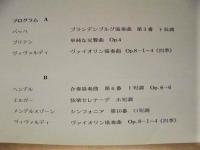 プログラム A
バッハ ブランデンブルグ協奏曲 第3番 ト長調
ブリテン 単純な交響曲 Op.4
ヴィヴァルディ ヴァイオリン協奏曲 Op.8-1~4 (四季)
B
ヘンデル 合奏協奏曲 第6番 ト短調 Op.6-6
エルガー 弦楽セレナーデ ホ短調
メンデルスゾーン シンフォニア 第10番 ロ短調
ヴィヴァルディ ヴァイオリン協奏曲 Op.8-1~4 (四季)